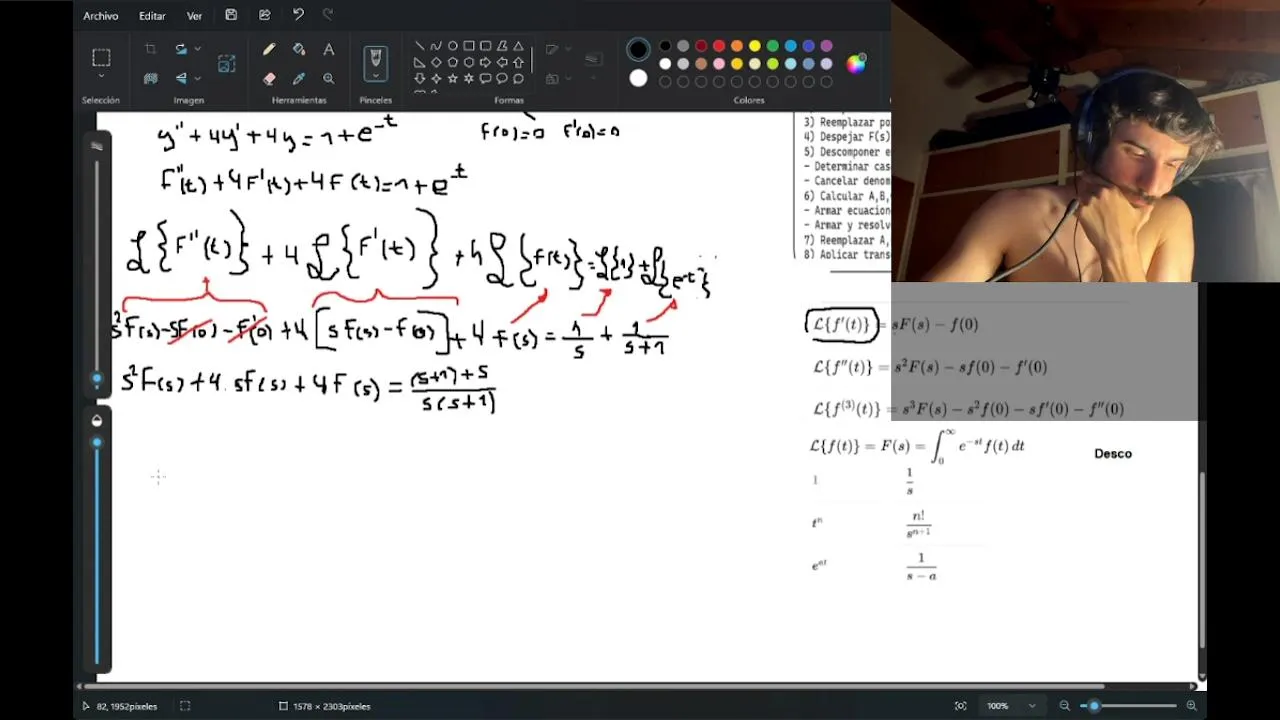 Archivo Editar Ver
Selección Imagen Herramientas Pinceles Formas Colores
y'' + 4y' + 4y = 1 + e^-t
f(0)=0 f'(0)=0
F''(t) + 4F'(t) + 4F(t) = 1 + e^-t
ℒ{F''(t)} + 4ℒ{F'(t)} + 4ℒ{f(t)} = ℒ{1} + ℒ{e^-t}
s²F(s) - sF(0) - F'(0) + 4[sF(s) - f(0)] + 4F(s) = 1/s + 1/(s+1)
s²F(s) + 4.sF(s) + 4F(s) = ((s+1)+s)/(s(s+1))
3) Reemplazar po
4) Despejar F(s)
5) Descomponer e
- Determinar cas
- Cancelar denom
6) Calcular A,B,
- Armar ecuacion
- Armar y resolv
7) Reemplazar A,
8) Aplicar trans
ℒ{f'(t)} = sF(s) − f(0)
ℒ{f''(t)} = s²F(s) − sf(0) − f'(0)
ℒ{f^(3)(t)} = s³F(s) − s²f(0) − sf'(0) − f''(0)
ℒ{f(t)} = F(s) = ∫₀^∞ e^−st f(t) dt
Desco
1 1/s
t^n n!/s^(n+1)
e^at 1/(s − a)
82, 1952píxeles 1578 × 2303píxeles 100%